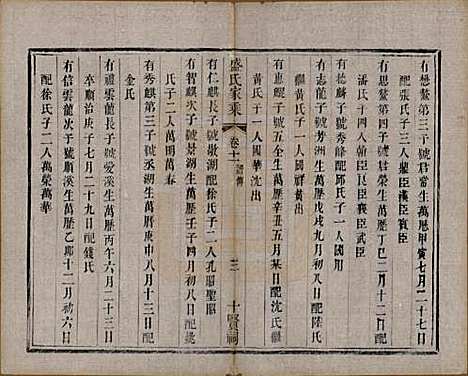 有懋鳌第三子號君常生萬歷甲寅七月二十七日
配張氏子三人繼臣漢臣賓臣
有思鳌第四子號君榮生萬歷丁巳二月十三日配
潘氏子四人幹臣民臣襄臣武臣
有麟子號秀峰配邱氏子一人國用
有志龍子號芳洲生萬歷戊戌九月初八日配陸氏
繼黃氏子一人國祥黃出
有惠鯤子號五全生萬歷辛丑五月某日配沈氏繼
黃氏子一人國華沈出
盛氏家乘
卷十一
譜傳
三
十賢祠
有仁麒長子號墩湖配徐氏子二人孔昭聖昭
有智麒次子號景湖生萬歷壬子四月初八日配姚
氏子二人萬明萬春
有秀麒第三子號丞湖生萬歷庚申八月十三日配
金氏
有禮雲龍長子號愛溪生萬歷丙午六月二十三日
卒順治庚子七月二十九日配錢氏
有信雲龍次子號順溪生萬歷乙卯十二月初六日
配徐氏子二人萬榮萬華